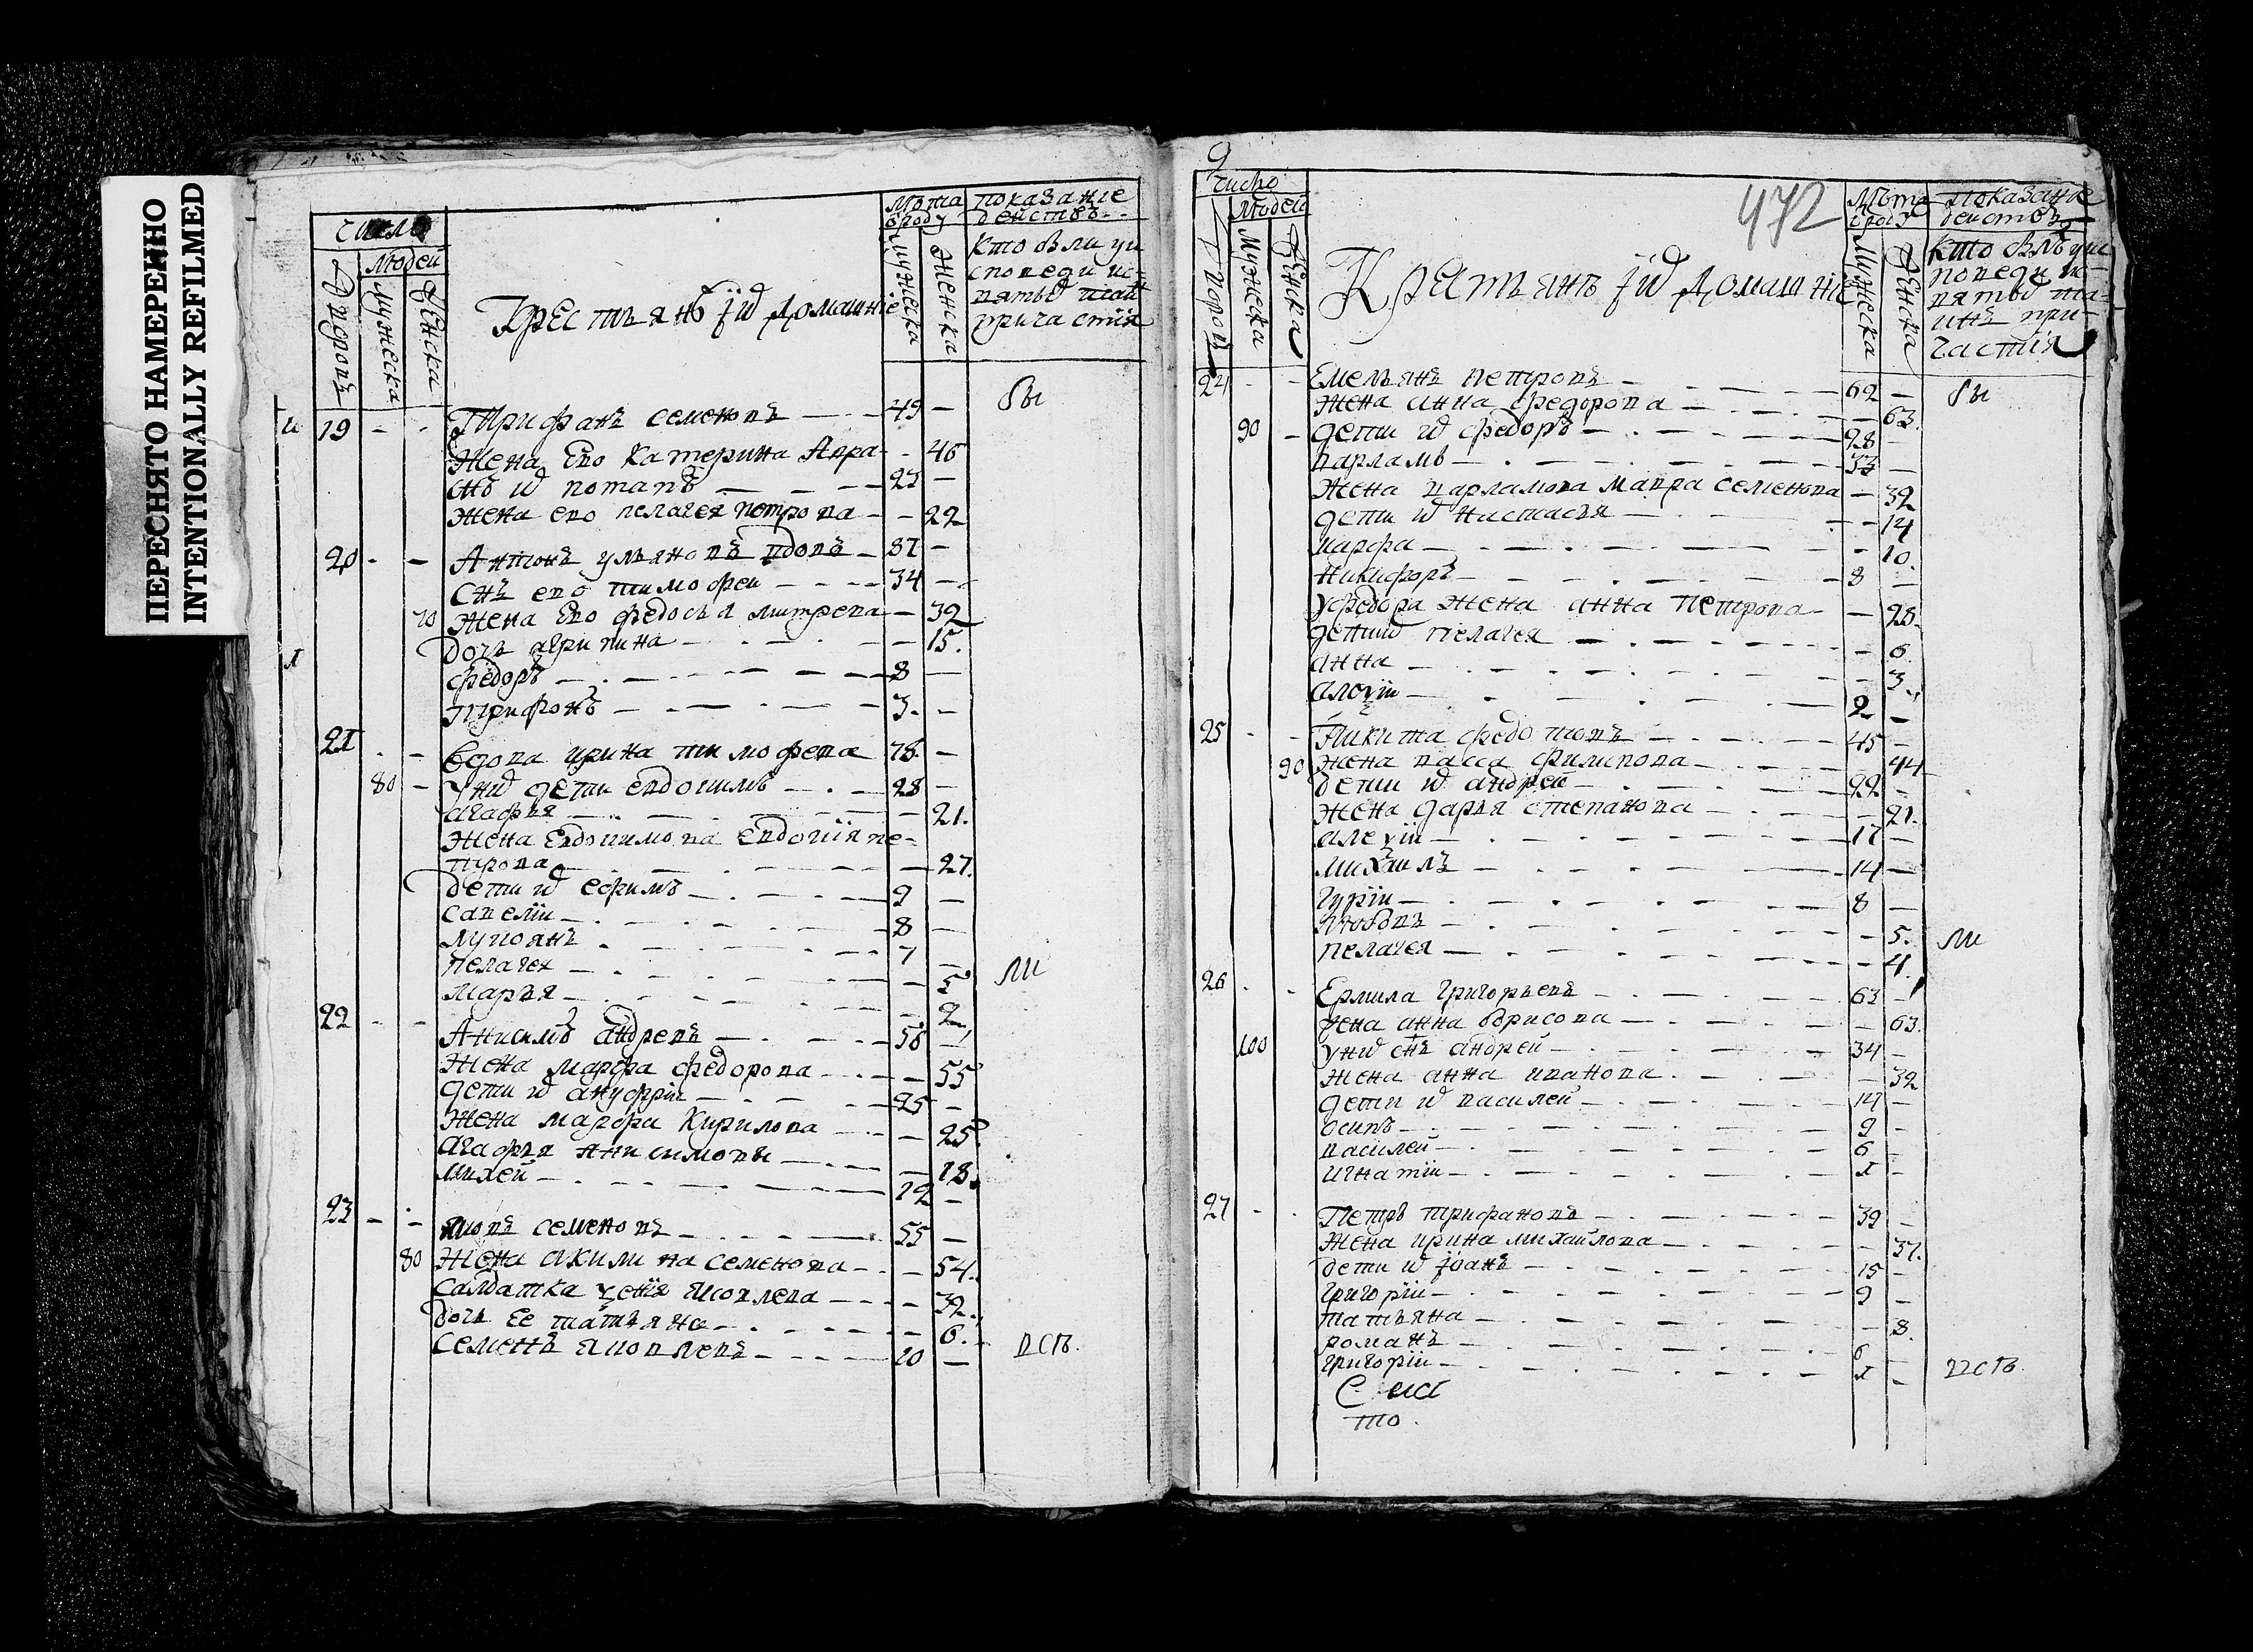 ПЕРЕСНЯТО НАМЕРЕННО
INTENTIONALLY REFILMED
Число
Людей
Дворовъ
Мужеска
Женска
Крестьянъ їихъ Домашнїе
Лѣта
ѿроду
Мужеска
Женска
показанїе
действъ
Кто были уи
споведи ис-
вятыхъ таи
причастїя
19 Трифанъ семеновъ 49
Жена Ево Катерина Лавра 46
снъ их потапъ 23
жена ево пелагея петрова 22
20 Антонъ ульяновъ вдовъ 37
Снъ ево тимофеи 34
70 Жена Ево федосья митрева 32
дочь агрипина 15
федоръ 8
трифонъ 3
21 Вдова ирина тимофева
80 Уних дети евдокимъ 28
агафья 21
Жена Евдокимова Евдокїя пе-
трова 27
дети их ефимъ 9
савелїи 8
лукоянъ 7
пелагея 5
Марья 2
22 Анисимъ андревъ 56
Жена марфа федорова 55
дети их ануфрїи 25
Жена марфа Кирилова 25
агафья анисимовы 18
михеи 12
23 яковъ семеновъ 55
80 Жена акилина семенова 54
Салдатка яковлева 32
дочь Ее татьяна 6
Семенъ яковлевъ 10
бы
ли
вси
9
472
Число
Людей
Дворов
Мужеска
Женска
Крестьянъ їих Домашнїе
Лѣта
ѿроду
Мужеска
Женска
показанїе
действъ
Кто былъ уис
поведи и
вятыхъ та-
инъ при-
частїя
24 Емельянъ петровъ 62
Жена анна федорова 63
90 дети их федоръ 28
варламъ 33
Жена варламова мавра семенова 32
дети их настасья 14
марфа 10
Никифоръ 8
уфедора жена анна петрова 28
дети их пелагея 6
анна 3
2
25 Никита 45
90 жена васса филипова 44
дети их андреи 22
жена дарья степанова 21
17
михаилъ 14
гурїи 8
любовь 5
пелагея 4
26 Ермила григорьевъ 63
жена анна борисова 63
100 уних снъ андреи 34
жена анна иванова 32
дети их василеи 14
осипъ 9
василеи 6
игнатїи 1
27 Петръ трифановъ 39
жена ирина михаилова 37
дети их їоанъ 15
григорїи 9
татьяна 8
романъ 6
григорїи 1
бы
ли
вси
то